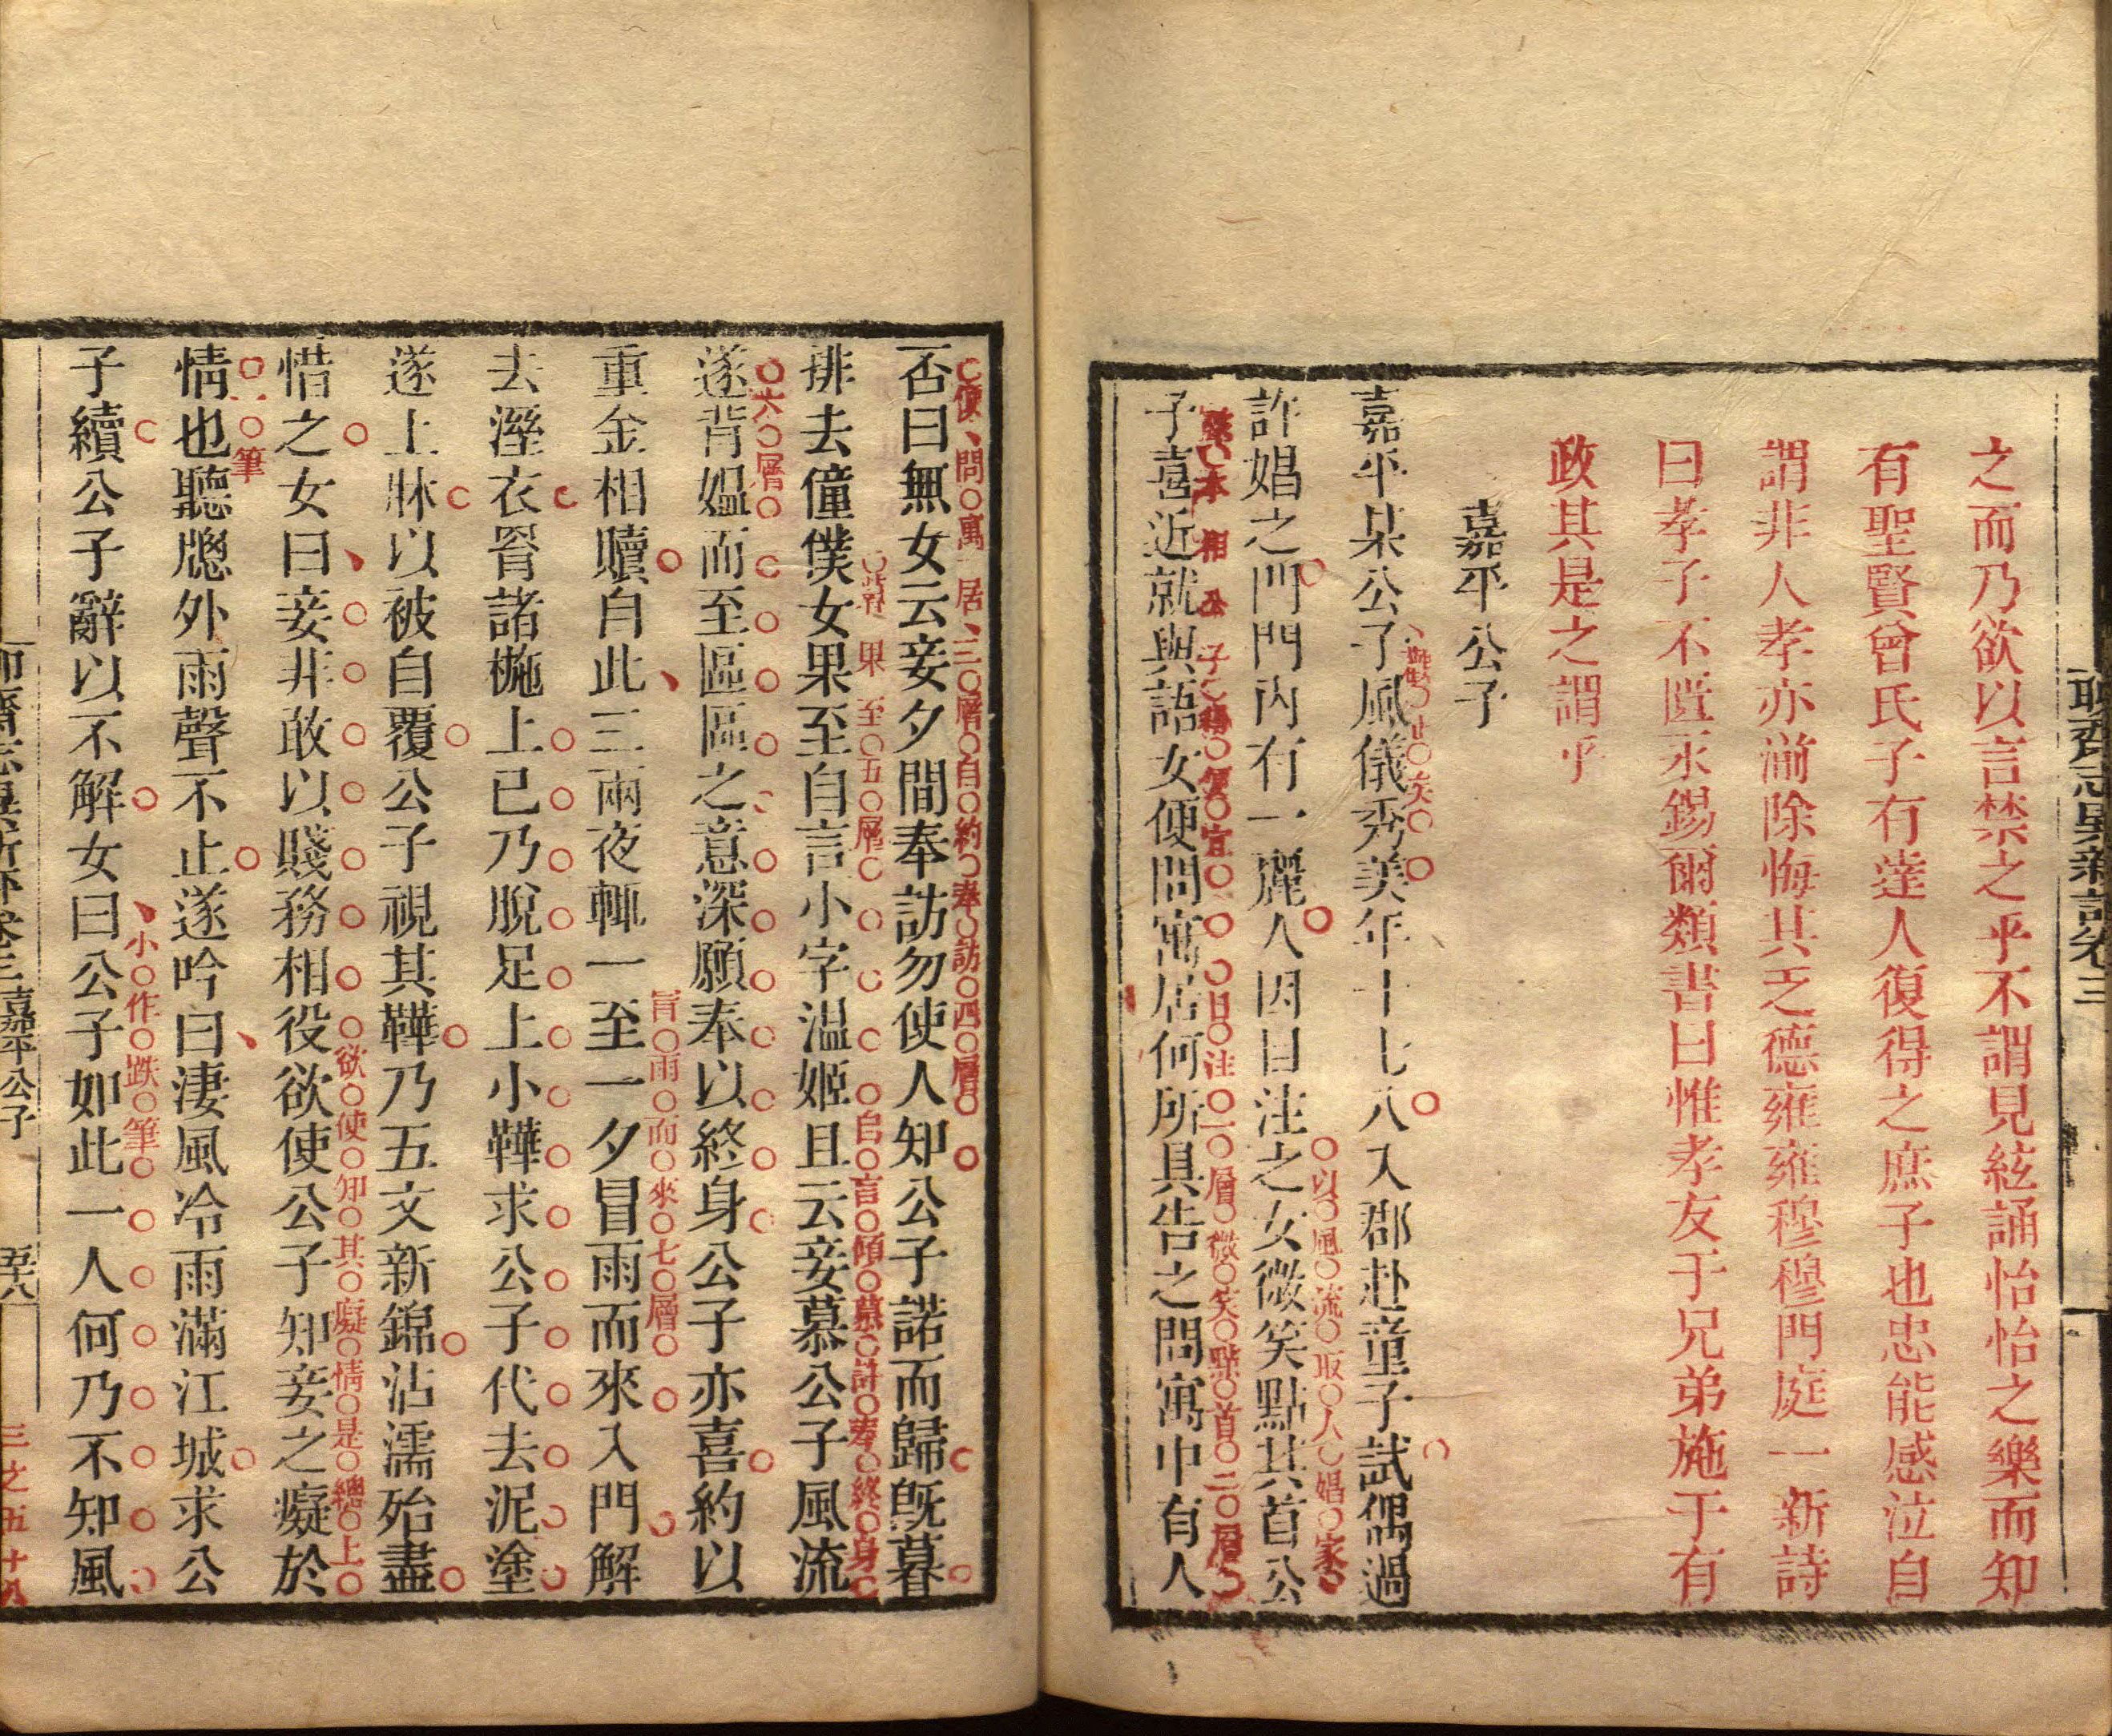 聊齋志異新評卷三
之而乃欲以言禁之乎不謂見絃誦怡怡之樂而知
有聖賢曾氏子有達人復得之庶子也忠能感泣自
謂非人孝亦湔除悔其乏德雍雍穆穆門庭一新詩
曰孝子不匱永錫爾類書曰惟孝友于兄弟施于有
政其是之謂乎
嘉平公子
嘉平某公子風儀秀美年十七八入郡赴童子試偶過
許娼之門門內有一麗人因目注之女微笑點其首公
以風流取人娼家
子喜近就與語女便問寓居何所具告之問寓中有人
目注一層微笑點首二層
否曰無女云妾夕間奉訪勿使人知公子諾而歸既暮
便問寓居三層自約奉訪四層
排去僮僕女果至自言小字温姬且云妾慕公子風流
果至五層自言傾慕許奉終身
遂背媼而至區區之意深願奉以終身公子亦喜約以
六層
重金相贖自此三兩夜輒一至一夕冒雨而來入門解
冒雨而來七層
去溼衣罥諸椸上已乃脫足上小鞾求公子代去泥塗
遂上牀以被自覆公子視其鞾乃五文新錦沾濡殆盡
惜之女曰妾非敢以賤務相役欲使公子知妾之癡於
欲使知其癡情是總上
情也聽牕外雨聲不止遂吟曰淒風冷雨滿江城求公
一筆
子續公子辭以不解女曰公子如此一人何乃不知風
小作跌筆
嘉平公子
三之五十八